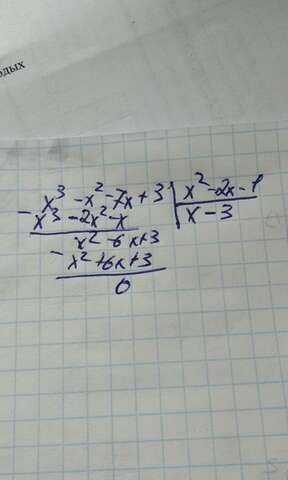 одых
x³ - x² - 7x + 3 | x² - 2x - 1
- x³ - 2x² - x | x - 3
x² - 6x + 3
- x² + 6x + 3
0